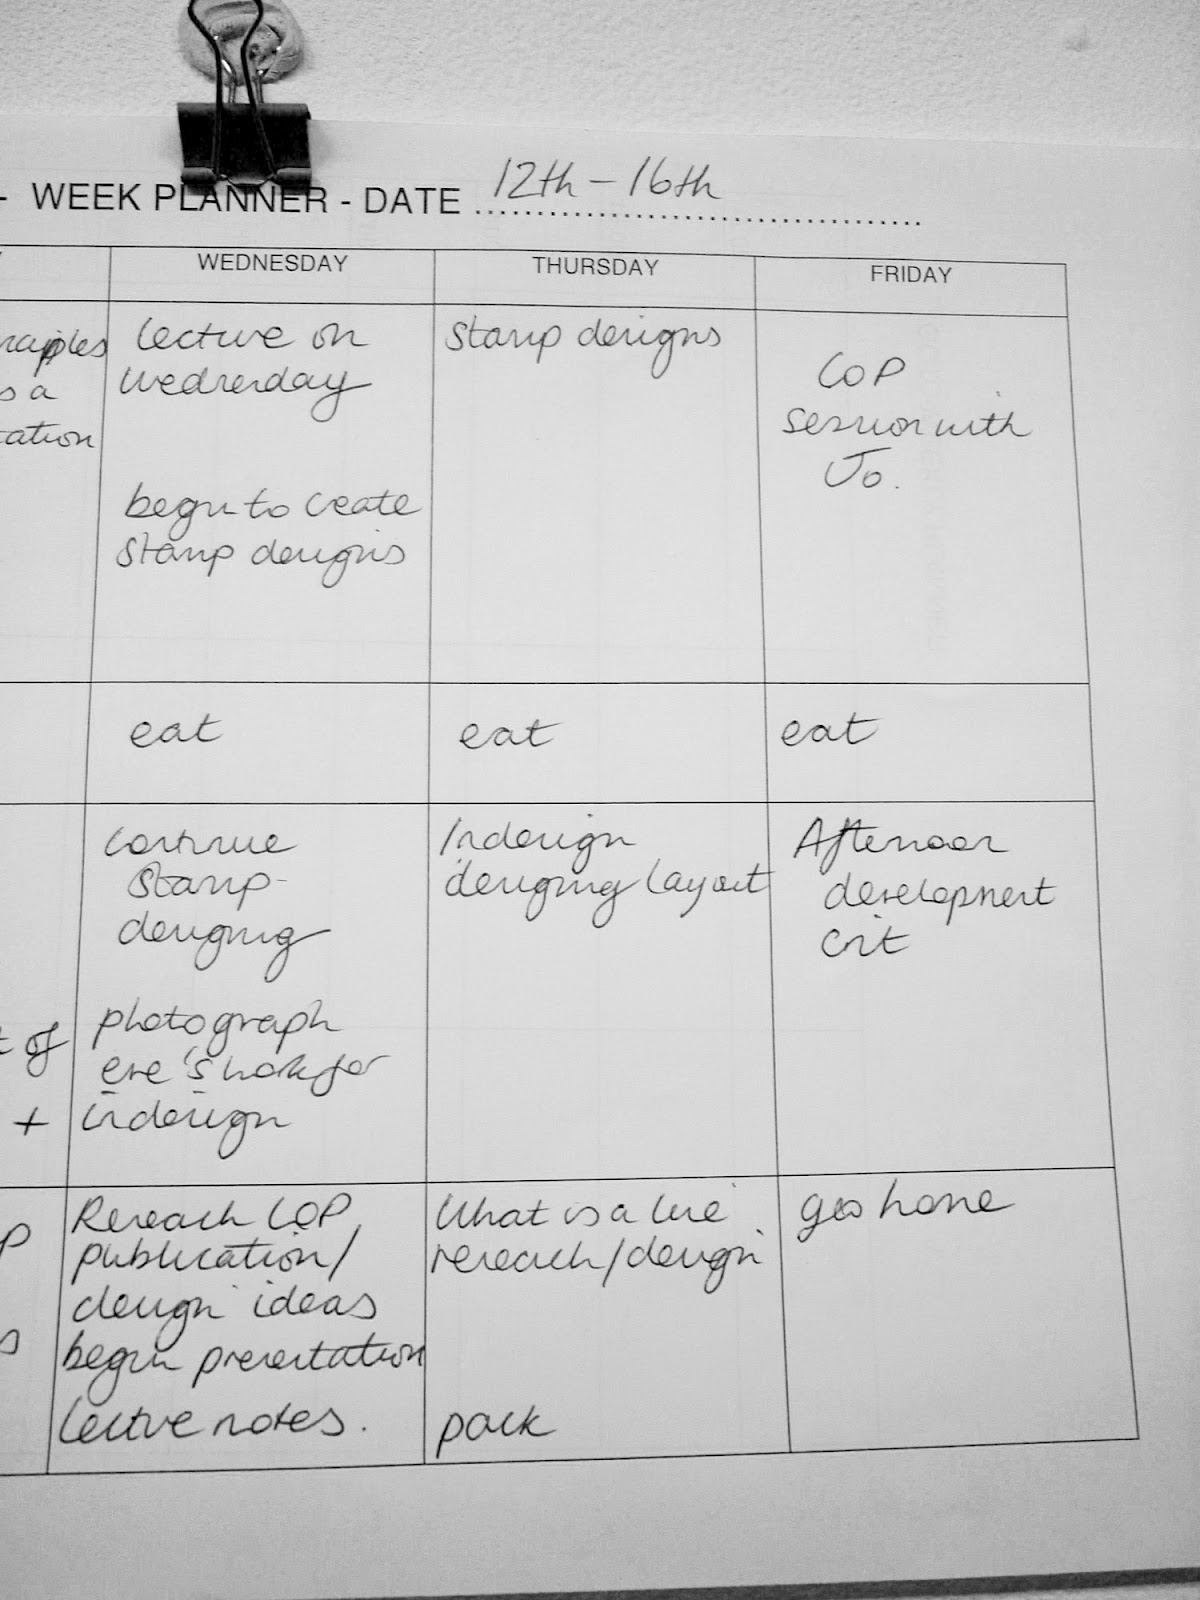 - WEEK PLANNER - DATE 12th - 16th
WEDNESDAY
THURSDAY
FRIDAY
s a
lecture on
wednesday
begin to create
stamp designs
stamp designs
COP
session with
Jo.
eat
eat
eat
continue
stamp
designing
photograph
eve's work for
indesign
t of
+
Indesign
designing layout
Afternoon
development
crit
Research COP
publication/
design ideas
begin presentation
lecture notes.
What is a line
research/design
pack
go home